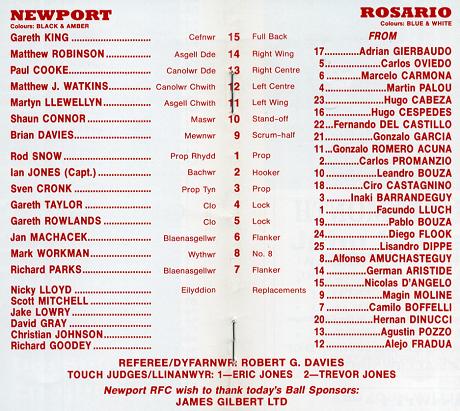 NEWPORT
Colours: BLACK & AMBER
Gareth KING Cefnwr 15 Full Back
Matthew ROBINSON Asgell Dde 14 Right Wing
Paul COOKE Canolwr Dde 13 Right Centre
Matthew J. WATKINS Canolwr Chwith 12 Left Centre
Martyn LLEWELLYN Asgell Chwith 11 Left Wing
Shaun CONNOR Maswr 10 Stand-off
Brian DAVIES Mewnwr 9 Scrum-half
Rod SNOW Prop Rhydd 1 Prop
Ian JONES (Capt.) Bachwr 2 Hooker
Sven CRONK Prop Tyn 3 Prop
Gareth TAYLOR Clo 4 Lock
Gareth ROWLANDS Clo 5 Lock
Jan MACHACEK Blaenasgellwr 6 Flanker
Mark WORKMAN Wythwr 8 No. 8
Richard PARKS Blaenasgellwr 7 Flanker
Nicky LLOYD Eilyddion Replacements
Scott MITCHELL
Jake LOWRY
David GRAY
Christian JOHNSON
Richard GOODEY
ROSARIO
Colours: BLUE & WHITE
FROM
17 Adrian GIERBAUDO
5 Carlos OVIEDO
6 Marcelo CARMONA
4 Martin PALOU
23 Hugo CABEZA
16 Hugo CESPEDES
22 Fernando DEL CASTILLO
21 Gonzalo GARCIA
11 Gonzalo ROMERO ACUNA
2 Carlos PROMANZIO
10 Leandro BOUZA
18 Ciro CASTAGNINO
3 Inaki BARRANDEGUY
1 Facundo LLUCH
19 Pablo BOUZA
24 Diego FLOOK
25 Lisandro DIPPE
8 Alfonso AMUCHASTEGUY
14 German ARISTIDE
15 Nicolas D'ANGELO
9 Magin MOLINE
7 Camilo BOFFELLI
20 Hernan DINUCCI
13 Agustin POZZO
12 Alejo FRADUA
REFEREE/DYFARNWR: ROBERT G. DAVIES
TOUCH JUDGES/LLINANWYR: 1—ERIC JONES 2—TREVOR JONES
Newport RFC wish to thank today's Ball Sponsors:
JAMES GILBERT LTD